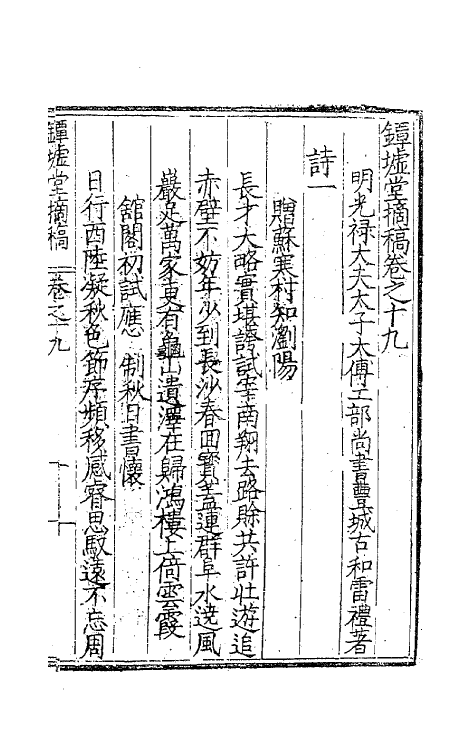 鐔墟堂摘稿卷之十九
明光禄大夫太子太傅工部尚書豐城古和雷禮著
詩一
贈蘇寒村知瀏陽
長才大略實堪誇試宰南翔去路賒共許壯遊追
赤壁不妨年少到長沙春回寳蓋連群阜水遶風
巖足萬家更有龜山遺澤在歸鴻樓上倚雲霞
舘閣初試應 制秋日書懷
日行西陸凝秋色節序頻移感睿思馭遠不忘周
鐔墟堂摘稿 卷之十九